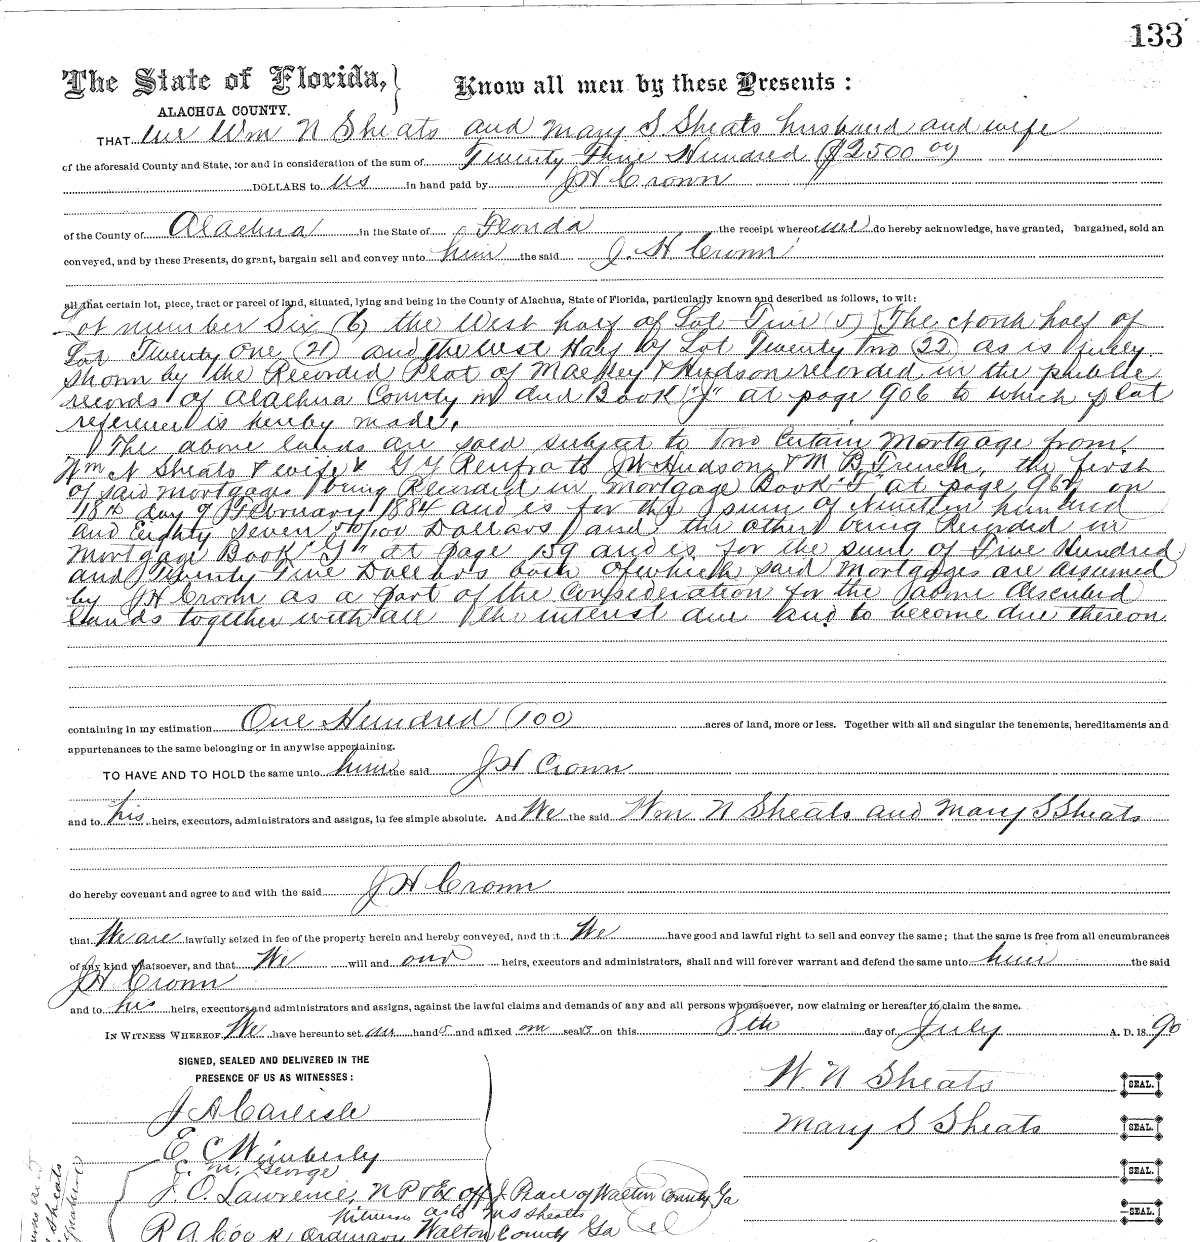 133
The State of Florida, Know all men by these Presents :
ALACHUA COUNTY.
THAT we Wm N Sheats and Mary S Sheats husband and wife
of the aforesaid County and State, for and in consideration of the sum of Twenty Five Hundred ($2500 00)
DOLLARS to us in hand paid by J H Crown
of the County of Alachua in the State of Florida the receipt whereof we do hereby acknowledge, have granted, bargained, sold an
conveyed, and by these Presents, do grant, bargain sell and convey unto him the said J. H Crown
all that certain lot, piece, tract or parcel of land, situated, lying and being in the County of Alachua, State of Florida, particularly known and described as follows, to wit:
Lot number Six (6) the West half of Lot Five (5) The North half of
Lot Twenty one (21) and the West Half of Lot Twenty Two (22) as is fully
shown by the Recorded Plat of & Hudson recorded in the public
records of Alachua County in deed Book "J" at page 906 to which plat
reference is hereby made.
The above lands are sold subject to two certain Mortgage from
Wm N Sheats & wife & G Y Renfro to J W Hudson & M B French, the first
of said mortgage being Recorded in Mortgage Book "F" at page on
18th day of February 1884 and is for the sum of Nineteen hundred
and Eighty seven 50/100 Dollars and the other being Recorded in
Mortgage Book at page 159 and is for the sum of Five Hundred
and Twenty Five Dollars both of which said mortgages are assumed
by J H Crown as a part of the consideration for the above described
lands together with all the interest due and to become due thereon
containing in my estimation One Hundred (100) acres of land, more or less. Together with all and singular the tenements, hereditaments and
appurtenances to the same belonging or in anywise appertaining.
TO HAVE AND TO HOLD the same unto him the said J H Crown
and to his heirs, executors, administrators and assigns, in fee simple absolute. And We the said Wm N Sheats and Mary S Sheats
do hereby covenant and agree to and with the said J H Crown
that We are lawfully seized in fee of the property herein and hereby conveyed, and that We have good and lawful right to sell and convey the same; that the same is free from all encumbrances
of any kind whatsoever, and that We will and our heirs, executors and administrators, shall and will forever warrant and defend the same unto him the said
J H Crown
and to his heirs, executors and administrators and assigns, against the lawful claims and demands of any and all persons whomsoever, now claiming or hereafter to claim the same.
IN WITNESS WHEREOF, We have hereunto set our hands and affixed our seals on this 8th day of July A. D. 1890
SIGNED, SEALED AND DELIVERED IN THE
PRESENCE OF US AS WITNESSES :
W. N Sheats SEAL.
J A Carlisle
Mary S Sheats SEAL.
E C Wimberly
E. M. George
SEAL.
J. O. Lawrence, N P & Ex off J Peace of Walton County Ga
Witness as to M S Sheats
SEAL.
R A Cook, Ordinary Walton County Ga
Sheats